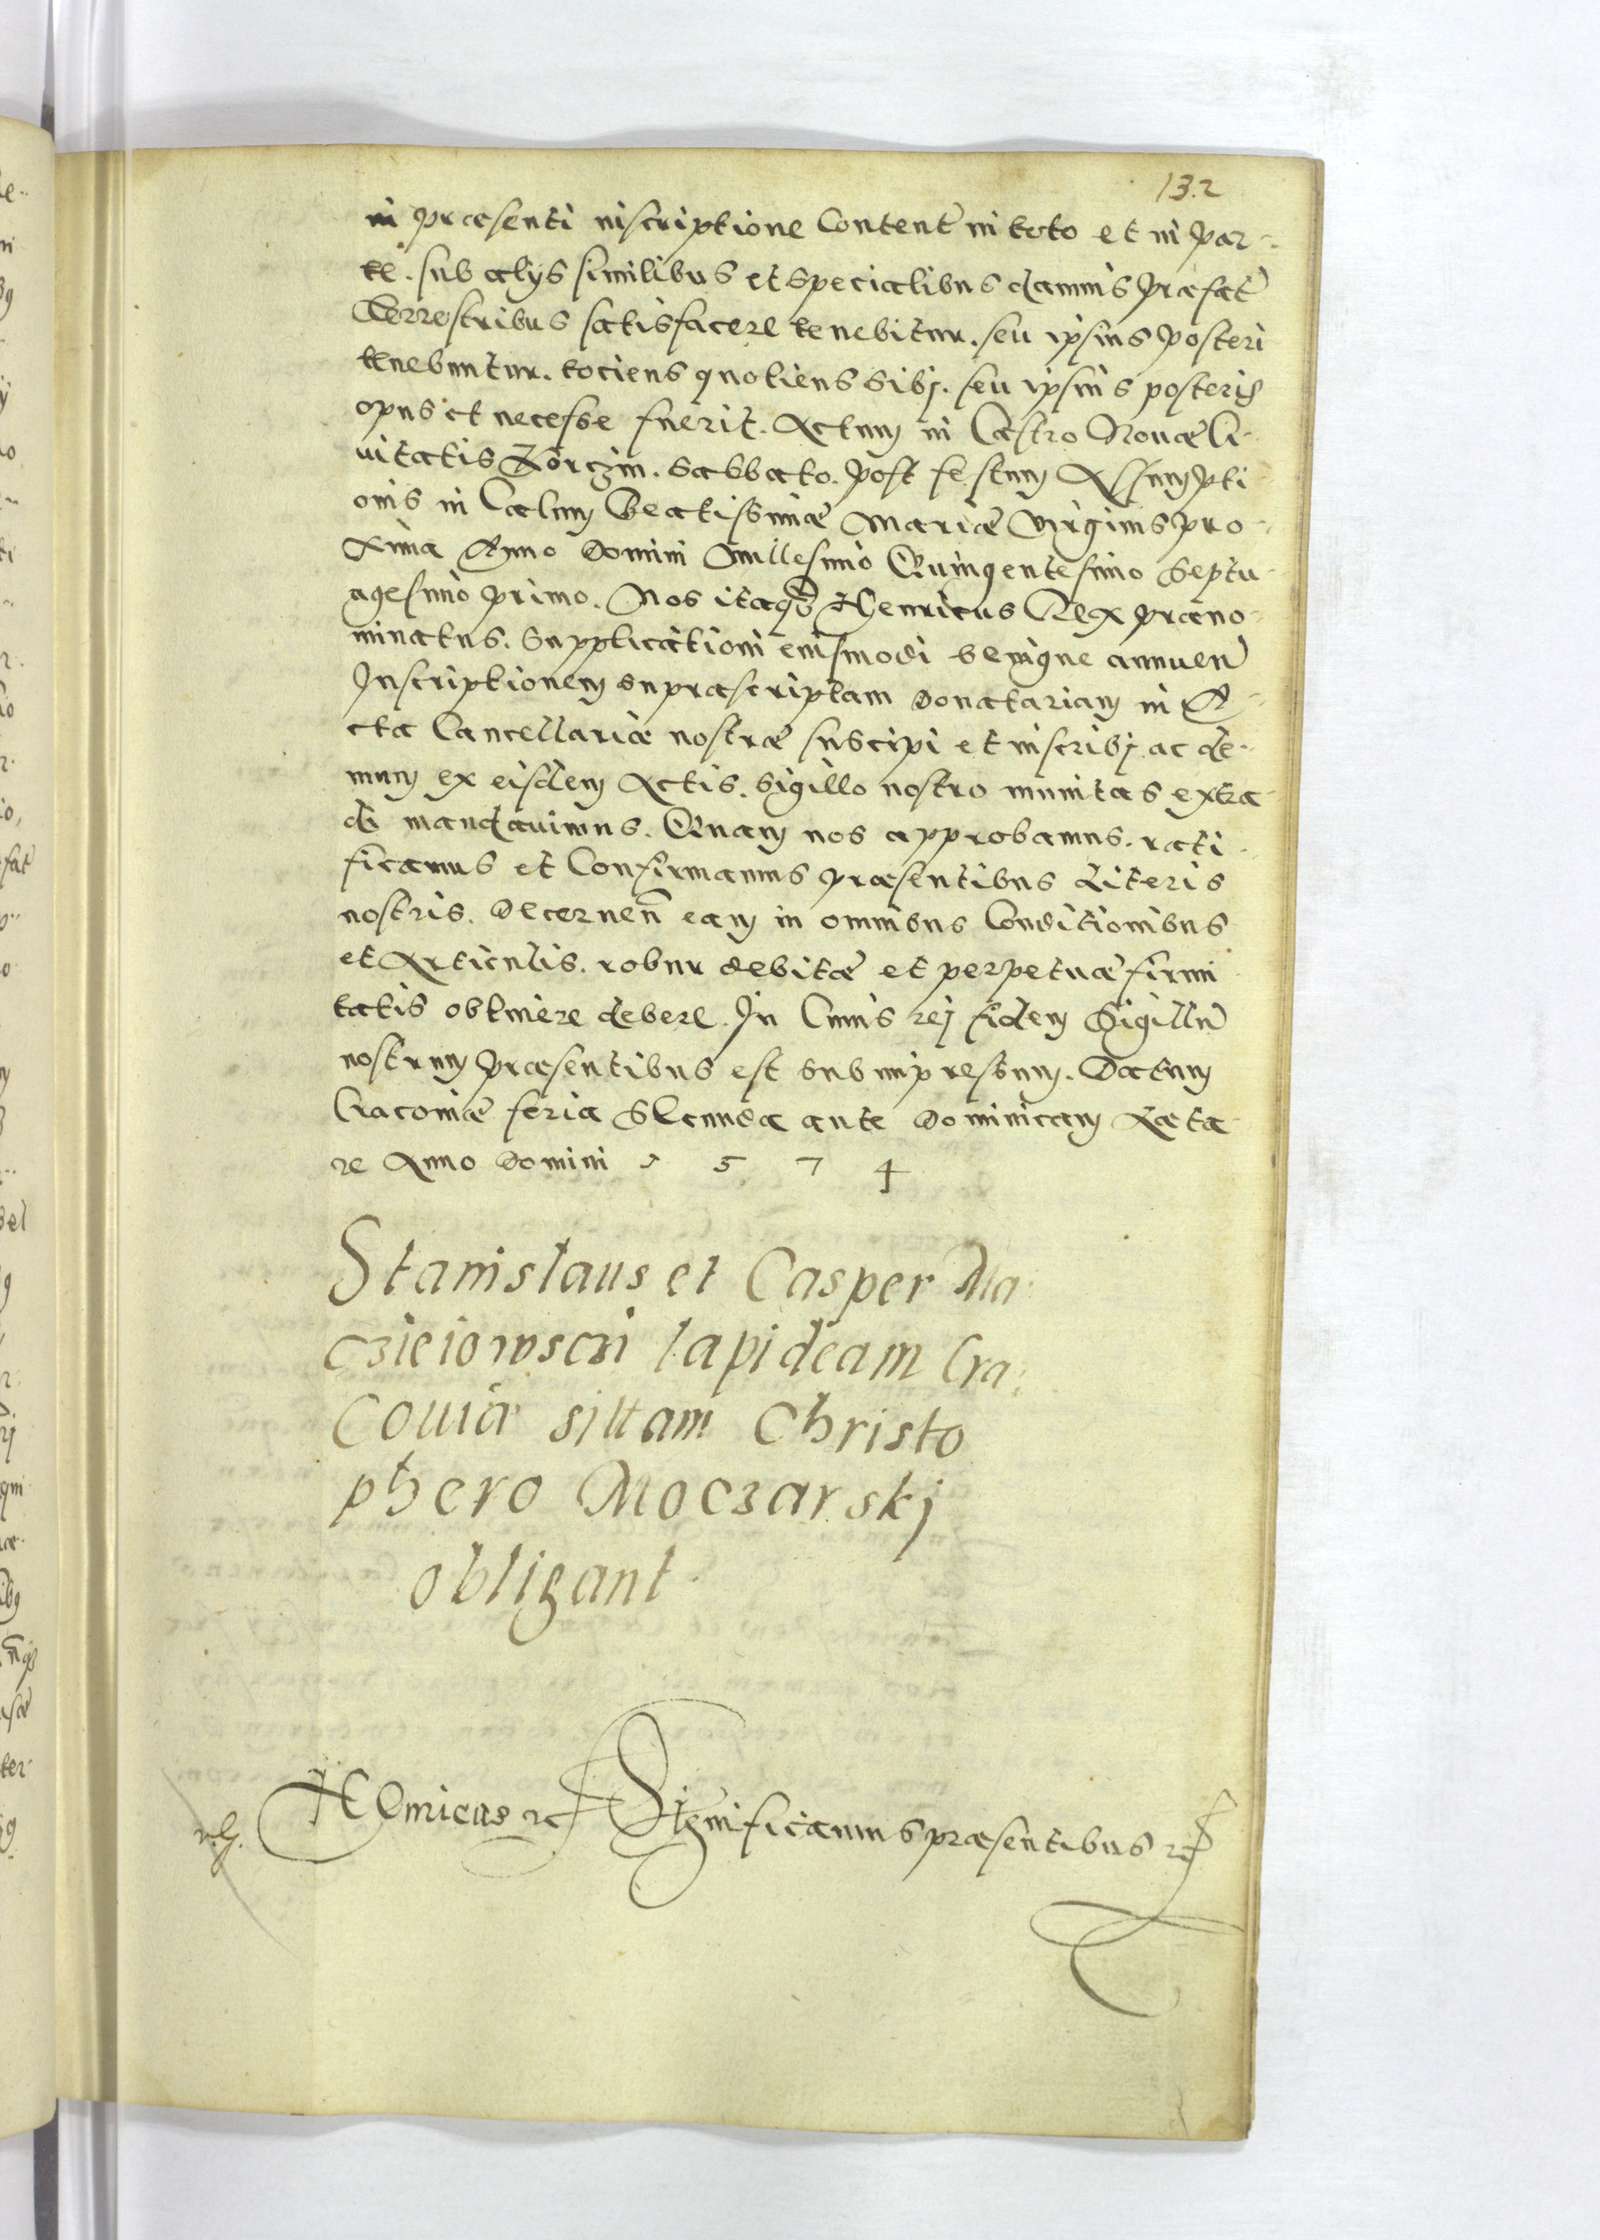 132
in præsenti inscriptione Content in toto et in par-
te. sub alijs similibus et specialibus damnis præfat
Terrestribus satisfacere tenebitur. seu ipsius posteri
tenebuntur. tociens quotiens sibj. seu ipsius posteris
opus et necesse fuerit. Actum in Castro Nouæ Ci-
uitatis Korczin. Sabbato. post festum Assumpti
onis in Cælum Beatissimæ Mariæ Virginis pro-
xima Anno Domini Millesimo Quingentesimo Septu-
agesimo primo. Nos itaq Henricus Rex præno-
minatus. Supplicationi eiusmodi benigne annuen
Inscriptionem supræscriptam Donatariam in A-
cta Cancellariæ nostræ suscipi et inscribj. ac de-
mum ex eisdem Actis. Sigillo nostro munitas extra-
di mandauimus. Quam nos approbamus. rati-
ficamus et Confirmamus præsentibus Literis
nostris. Decernen eam in omnibus Conditionibus
et Articulis. robur debitæ et perpetuæ firmi
tatis obtinere debere. In Cuius rej fidem Sigillu
nostrum præsentibus est subimpressum. Datum
Cracouiæ feria Secunda ante Dominicam Læta-
re Anno Domini 1 5 7 4
Stanislaus et Casper Ma-
czieiowsczi lapideam Cra-
Couiæ sittam Christo
phero Moczarskj
obligant
Henricus Significamus præsentibus